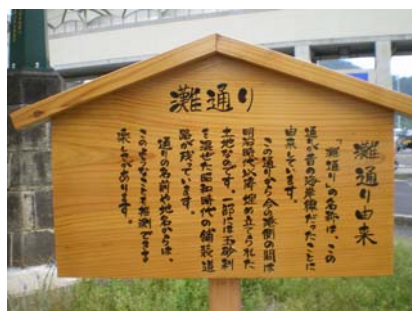 灘通り
灘通り由来
「灘通り」の名称は、この
通りが昔の海岸線だったことに
由来しています。
この通りから今の海側の間は
明治時代以降埋め立てられた
土地なのです。一部には玉砂利
を混ぜた昭和時代の舗装道
路が残っています。
通りの名前や地名からは、
このようなことも推測できる
楽しさがあります。